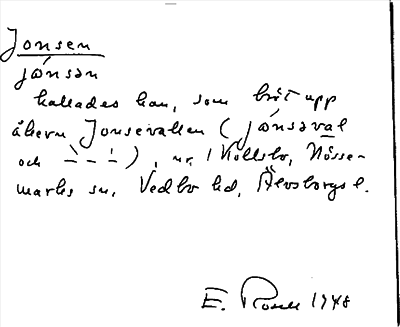 Jonsen
jónsən
kallades han, som bröt upp
åkern Jonsevallen (jónsəval
och ` - - ´), nr 1 Kollsbo, Nösse-
marks sn, Vedbo hd, Älvsborgs l.
E. 1948